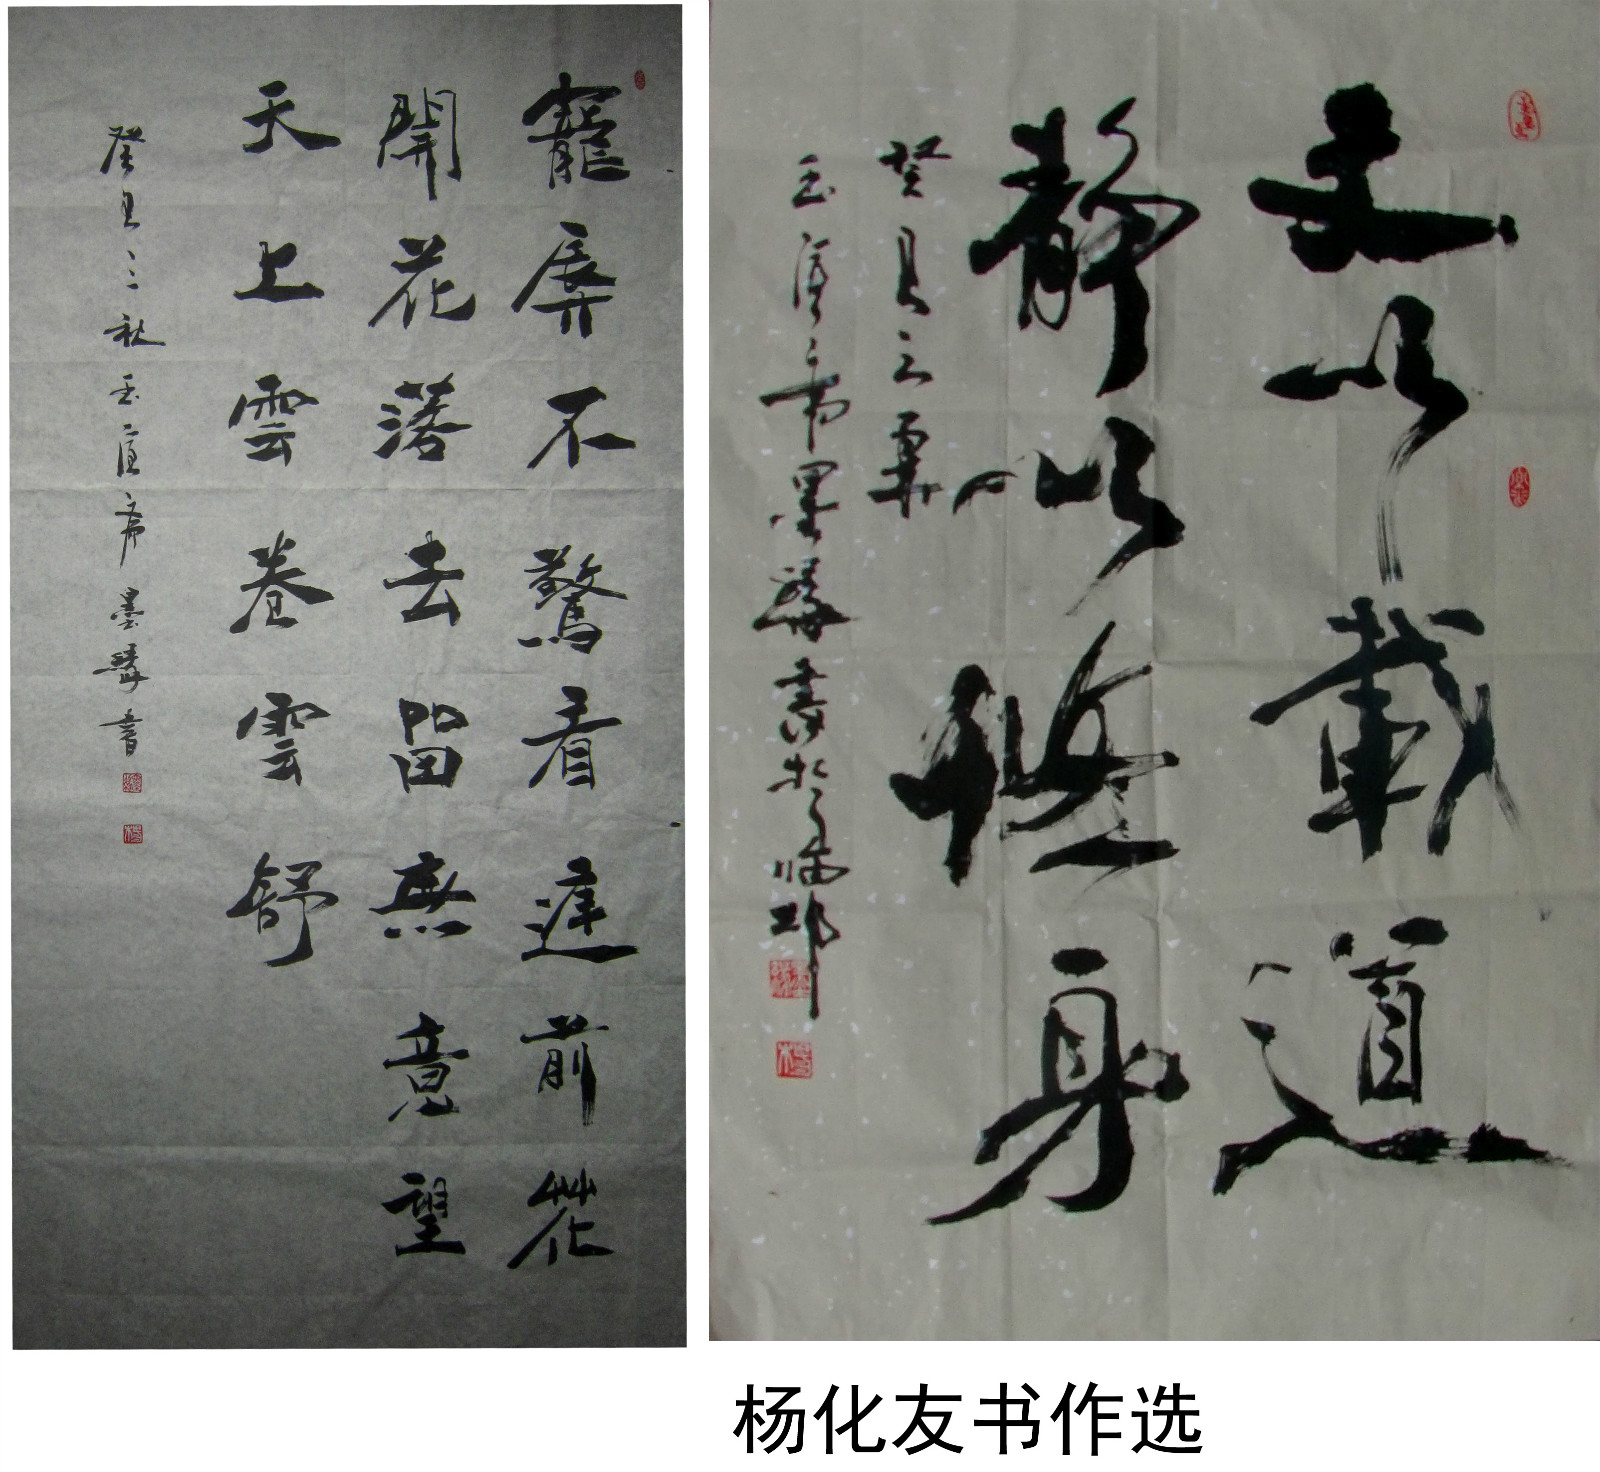 寵辱不驚看庭前花
開花落去留無意望
天上雲卷雲舒
癸巳之秋玉齋墨書
文以載道
靜以修身
癸巳之夏
玉齋墨書於臨邛
杨化友书作选